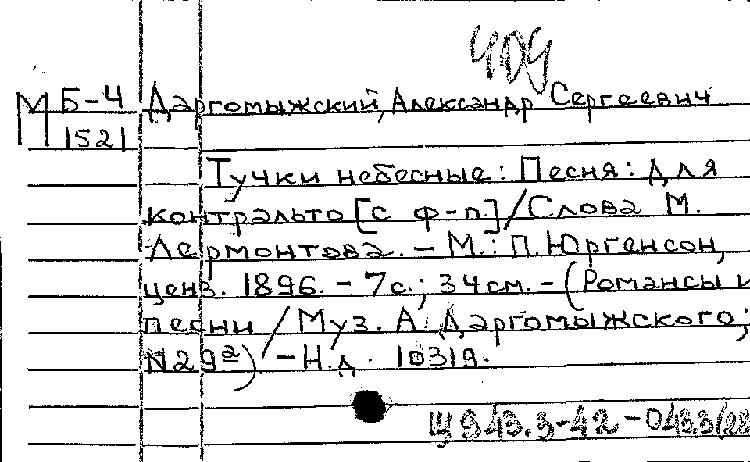 409
М Б-4 Даргомыжский, Александр Сергеевич
1521
Тучки небесные: Песня: Для
контральто [с ф-п.] / Слова М.
Лермонтова. – М.: П. Юргенсон,
ценз. 1896. – 7с.; 34см. – (Романсы и
песни / Муз. А. Даргомыжского;
N29а) – Н.д. 10319.